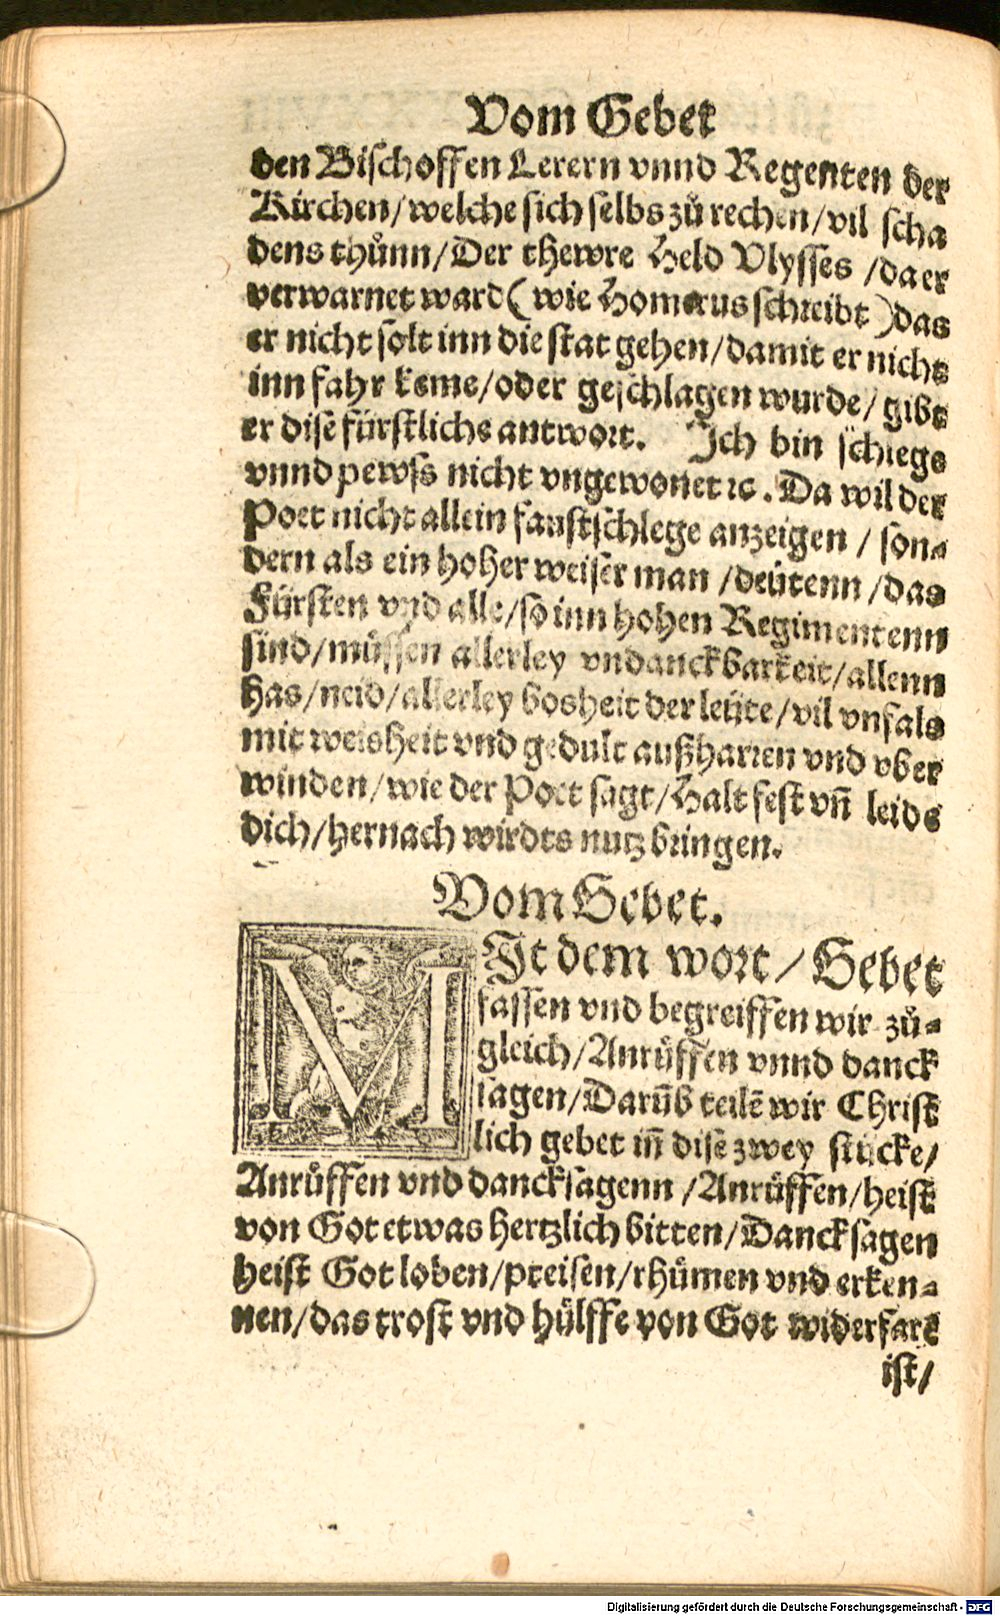 Vom Gebet
den Bischoffen Lerern vnnd Regenten der
Kirchen/welche sich selbs zů rechen/vil scha
dens thůnn/Der thewre Held Vlysses /da er
verwarnet ward( wie Homerus schreibt )das
er nicht solt inn die stat gehen/damit er nicht
inn fahr keme/oder geschlagen wurde/gibt
er dise fürstlichs antwort. Ich bin schlegs
vnnd pewss nicht vngewonet ꝛc. Da wil der
Poet nicht allein faustschlege anzeigen / son⸗
dern als ein hoher weiser man /deütenn /das
Fürsten vnd alle/so inn hohen Regimentenn
sind/müssen allerley vndanckbarkeit/allenn
has/neid/allerley bosheit der leüte/vil vnfals
mit weisheit vnd gedult außharren vnd vber
winden/wie der Poet sagt/Halt fest vñ leids
dich/hernach wirdts nutz bringen.
Vom Gebet.
MIt dem wort/ Gebet
fassen vnd begreiffen wir zů⸗
gleich/Anrůffen vnnd danck
sagen/Darũb teilẽ wir Christ
lich gebet iñ dise zwey stücke/
Anrůffen vnd dancksagenn /Anrůffen/heist
von Got etwas hertzlich bitten/Dancksagen
heist Got loben/preisen/rhůmen vnd erken⸗
nen/das trost vnd hülffe von Got widerfare
ist/
Digitalisierung gefördert durch die Deutsche Forschungsgemeinschaft - DFG